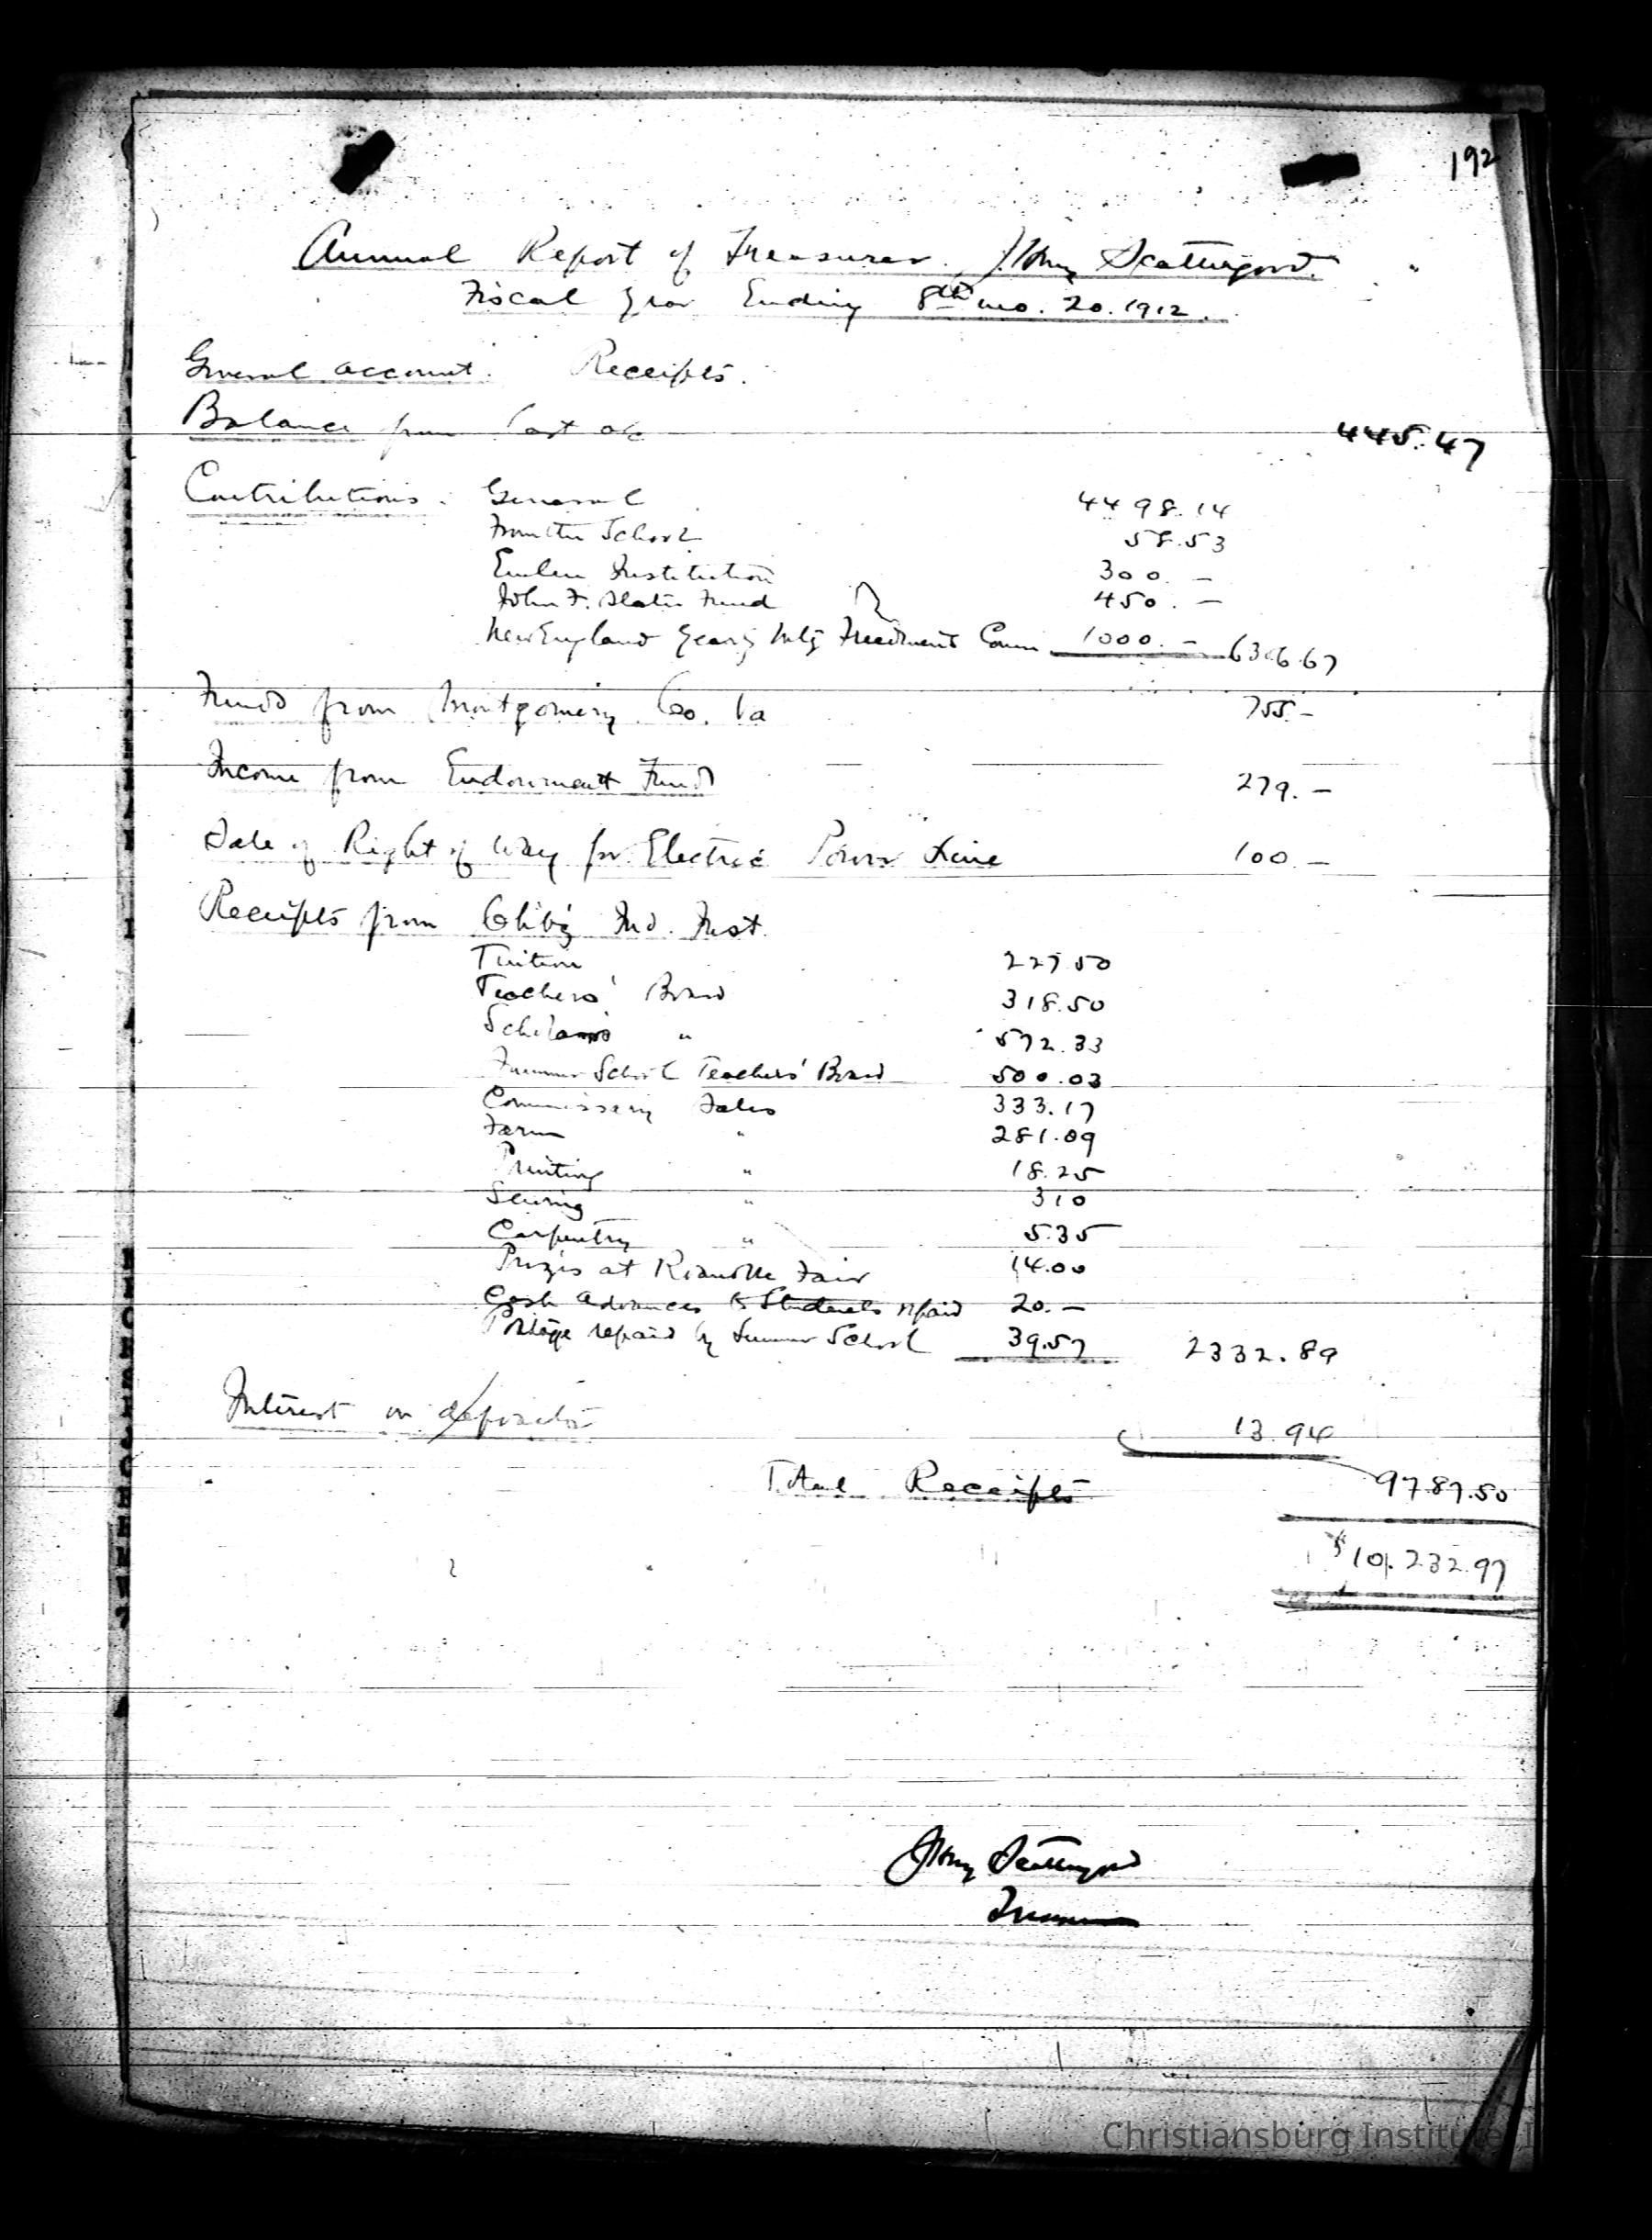 192
Annual Report of Treasurer. J. Henry Scattergood.
Fiscal Year Ending 8th mo. 20. 1912.
General account. Receipts.
Balance from last a/c 445.47
Contributions. General 4498.14
From the School 58.53
Emlen Institution 300. –
John F. Slater Fund 450. –
New England Yearly Mtg Freedmens Comm 1000. – 6306.67
Funds from Montgomery Co. Va 755. –
Income from Endowment Fund 279. –
Sale of Right of Way for Electric Power Line 100. –
Receipts from Chb'g Ind. Inst.
Tuition 227.50
Teachers' Board 318.50
Scholars " 572.33
Summer School Teachers' Board 500.03
Commissary Sales 333.17
Farm " 281.09
Printing " 18.25
Sewing " 3 10
Carpentry " 5.35
Prizes at Roanoke Fair 14.00
Cash Advances to Students repaid 20. –
Postage repaid by Summer School 39.57 2332.89
Interest on deposits 13.94
Total Receipts 9787.50
$10,232.97
J Henry Scattergood
Treasurer
Christiansburg Institute, I